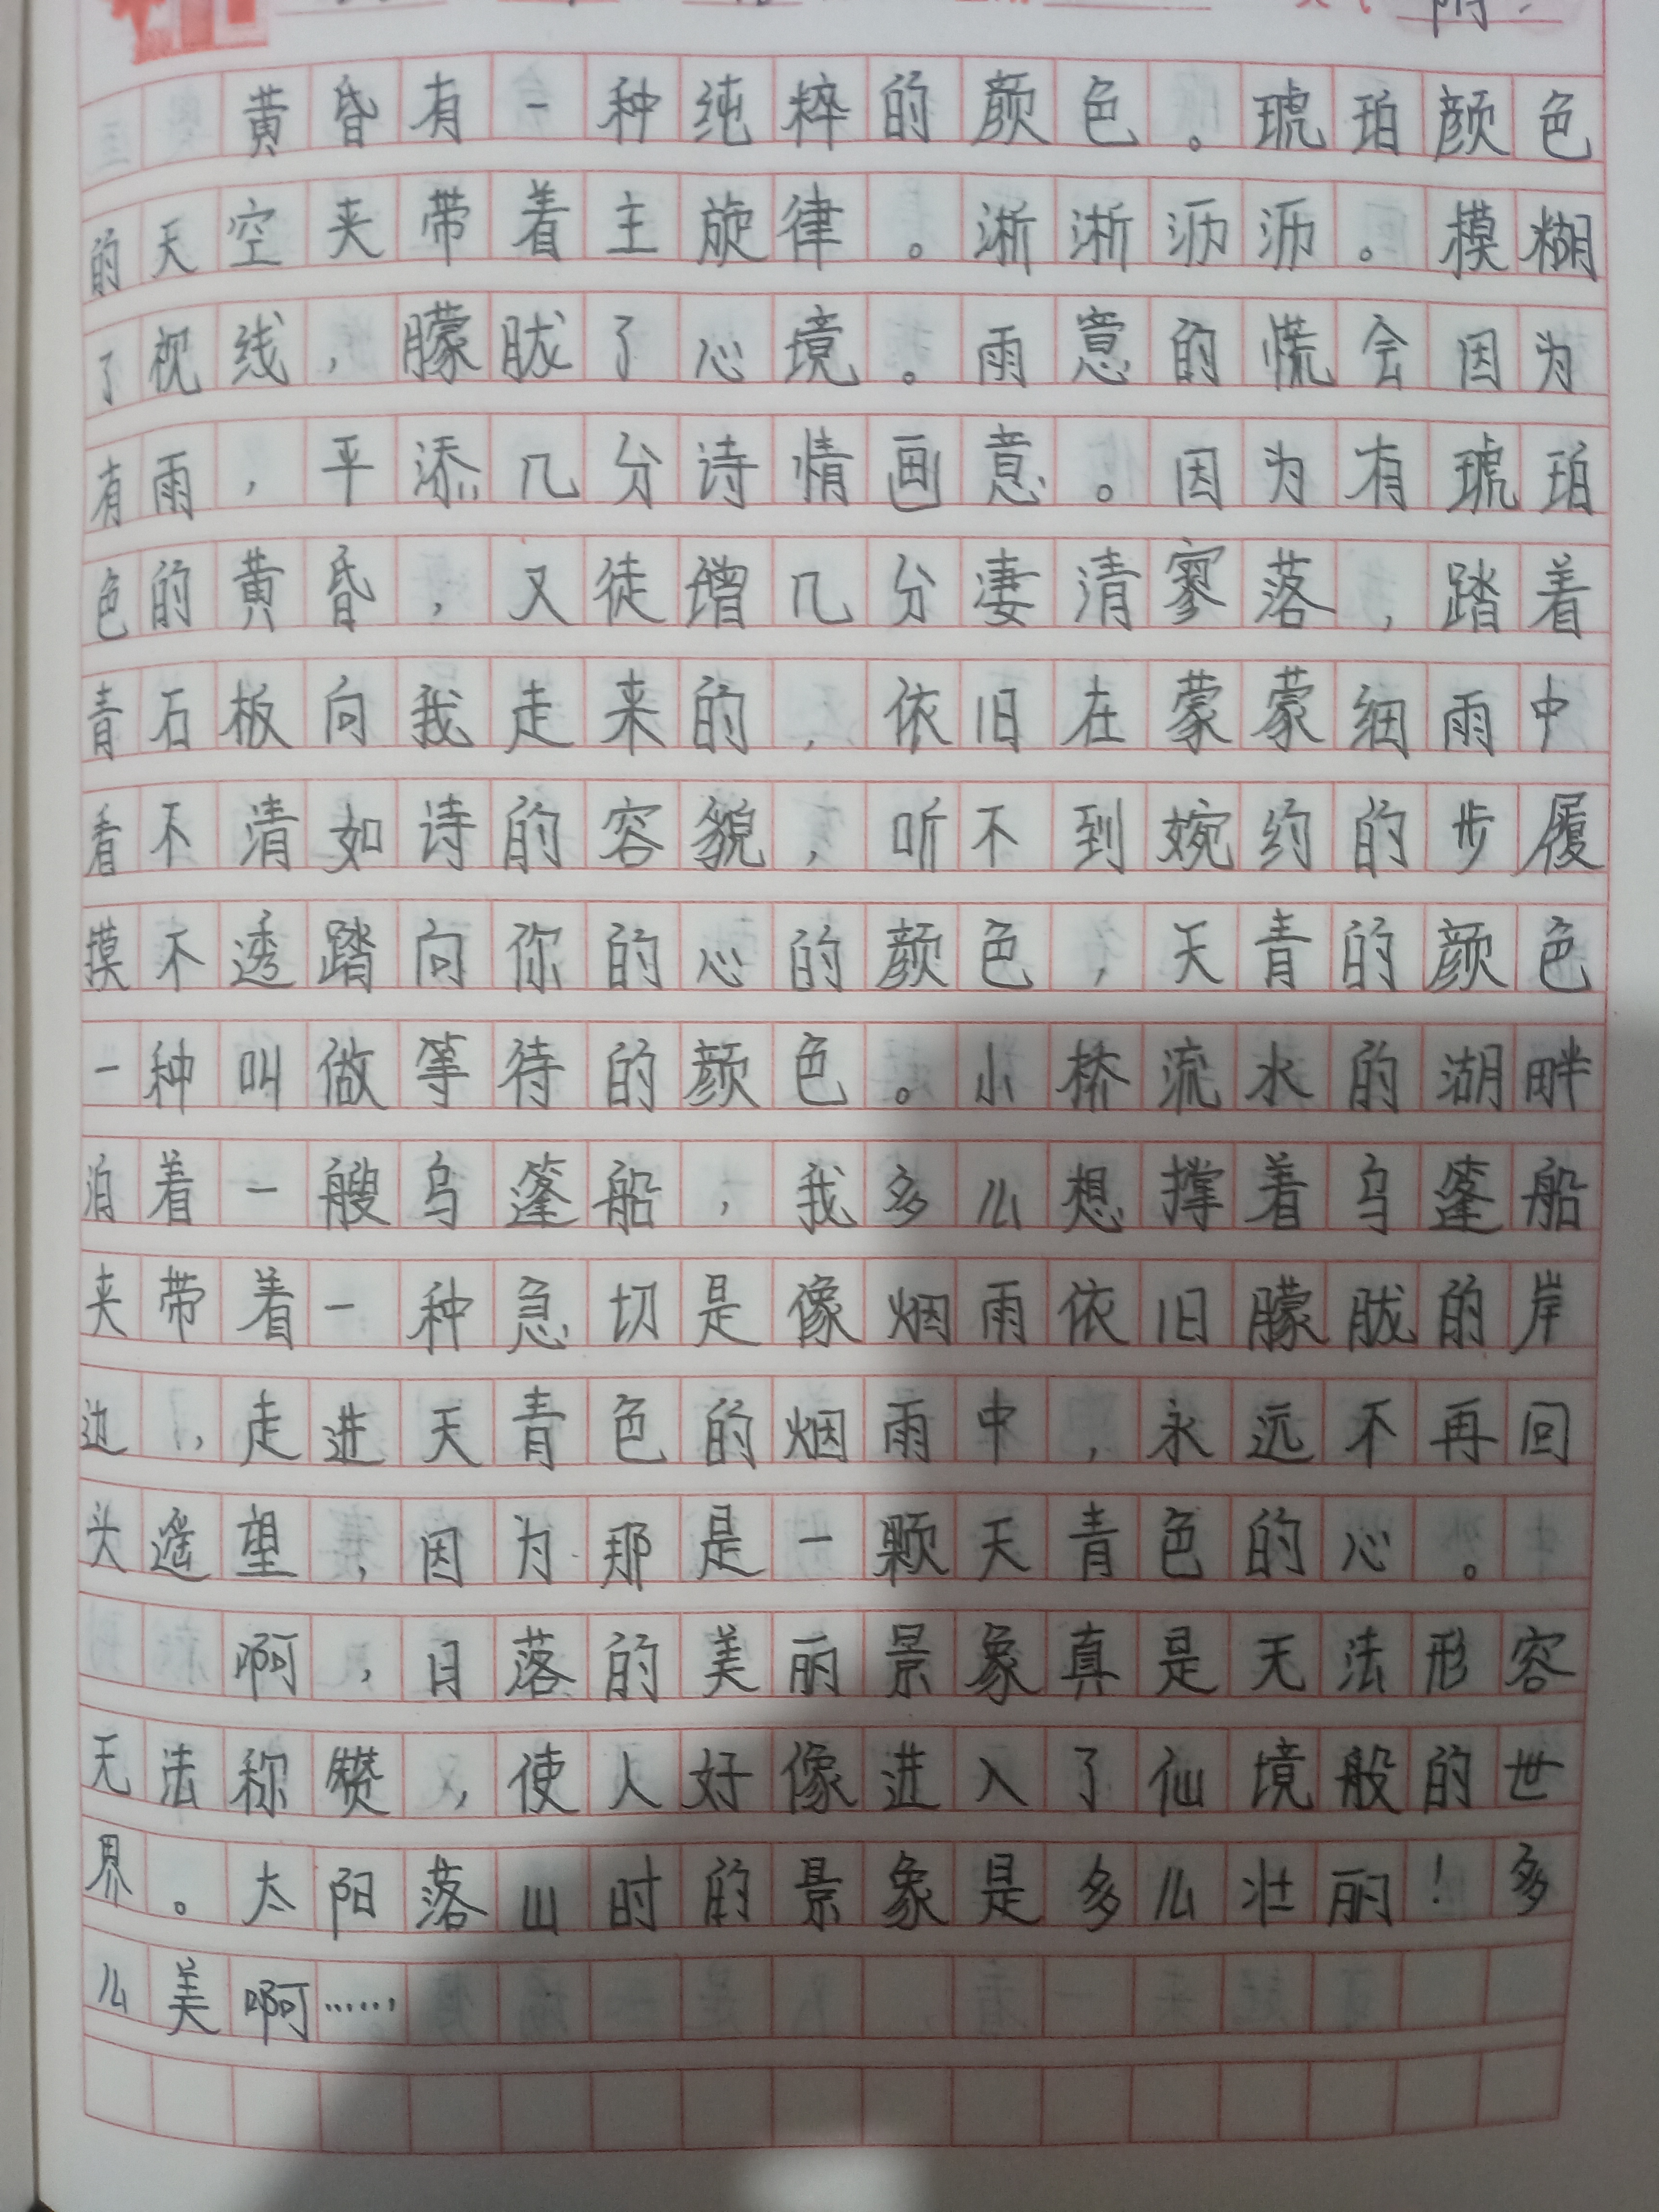 黄昏有一种纯粹的颜色。琥珀颜色
的天空夹带着主旋律。淅淅沥沥。模糊
了视线，朦胧了心境。雨意的慌会因为
有雨，平添几分诗情画意。因为有琥珀
色的黄昏，又徒增几分凄清寥落，踏着
青石板向我走来的，依旧在蒙蒙细雨中
看不清如诗的容貌，听不到婉约的步履
摸不透踏向你的心的颜色，天青的颜色
一种叫做等待的颜色。小桥流水的湖畔
泊着一艘乌篷船，我多么想撑着乌篷船
夹带着一种急切是像烟雨依旧朦胧的岸
边，走进天青色的烟雨中，永远不再回
头遥望，因为那是一颗天青色的心。
啊，日落的美丽景象真是无法形容
无法称赞，使人好像进入了仙境般的世
界。太阳落山时的景象是多么壮丽！多
么美啊……